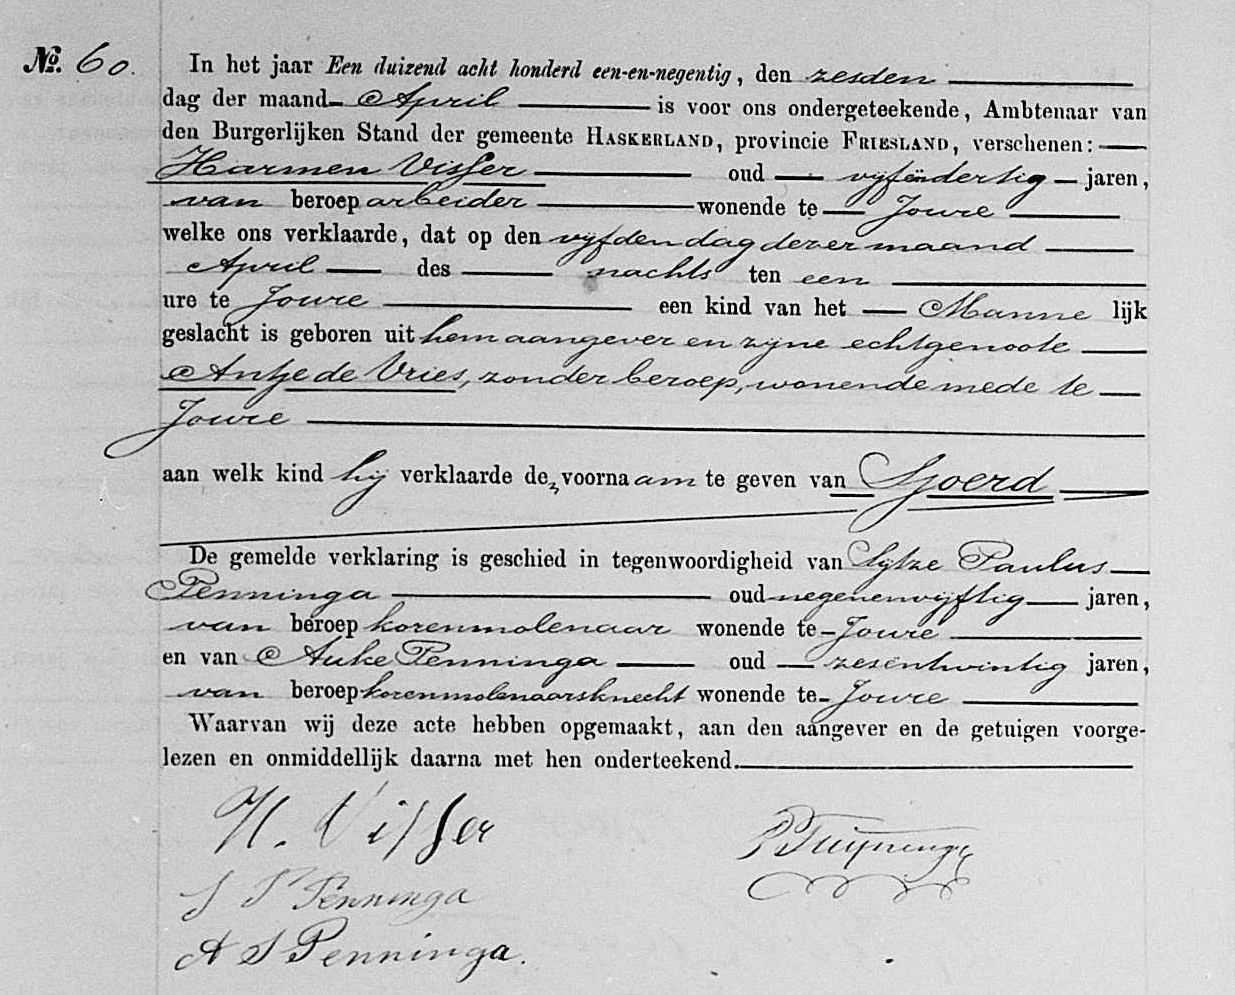 No. 60. In het jaar Een duizend acht honderd een-en-negentig, den zesden
dag der maand April is voor ons ondergeteekende, Ambtenaar van
den Burgerlijken Stand der gemeente HASKERLAND, provincie FRIESLAND, verschenen:
Harmen Visser oud vijfendertig jaren,
van beroep arbeider wonende te Joure
welke ons verklaarde, dat op den vijfden dag dezer maand
April des nachts ten een
ure te Joure een kind van het Manne lijk
geslacht is geboren uit hem aangever en zijne echtgenoote
Antje de Vries, zonder beroep, wonende mede te
Joure
aan welk kind hij verklaarde de voornaam te geven van Sjoerd
De gemelde verklaring is geschied in tegenwoordigheid van Sytze Paulus
Penninga oud negenenvijftig jaren,
van beroep korenmolenaar wonende te Joure
en van Auke Penninga oud zesentwintig jaren,
van beroep korenmolenaarsknecht wonende te Joure
Waarvan wij deze acte hebben opgemaakt, aan den aangever en de getuigen voorge-
lezen en onmiddellijk daarna met hen onderteekend.
H. Visser
S P Penninga
A S Penninga.